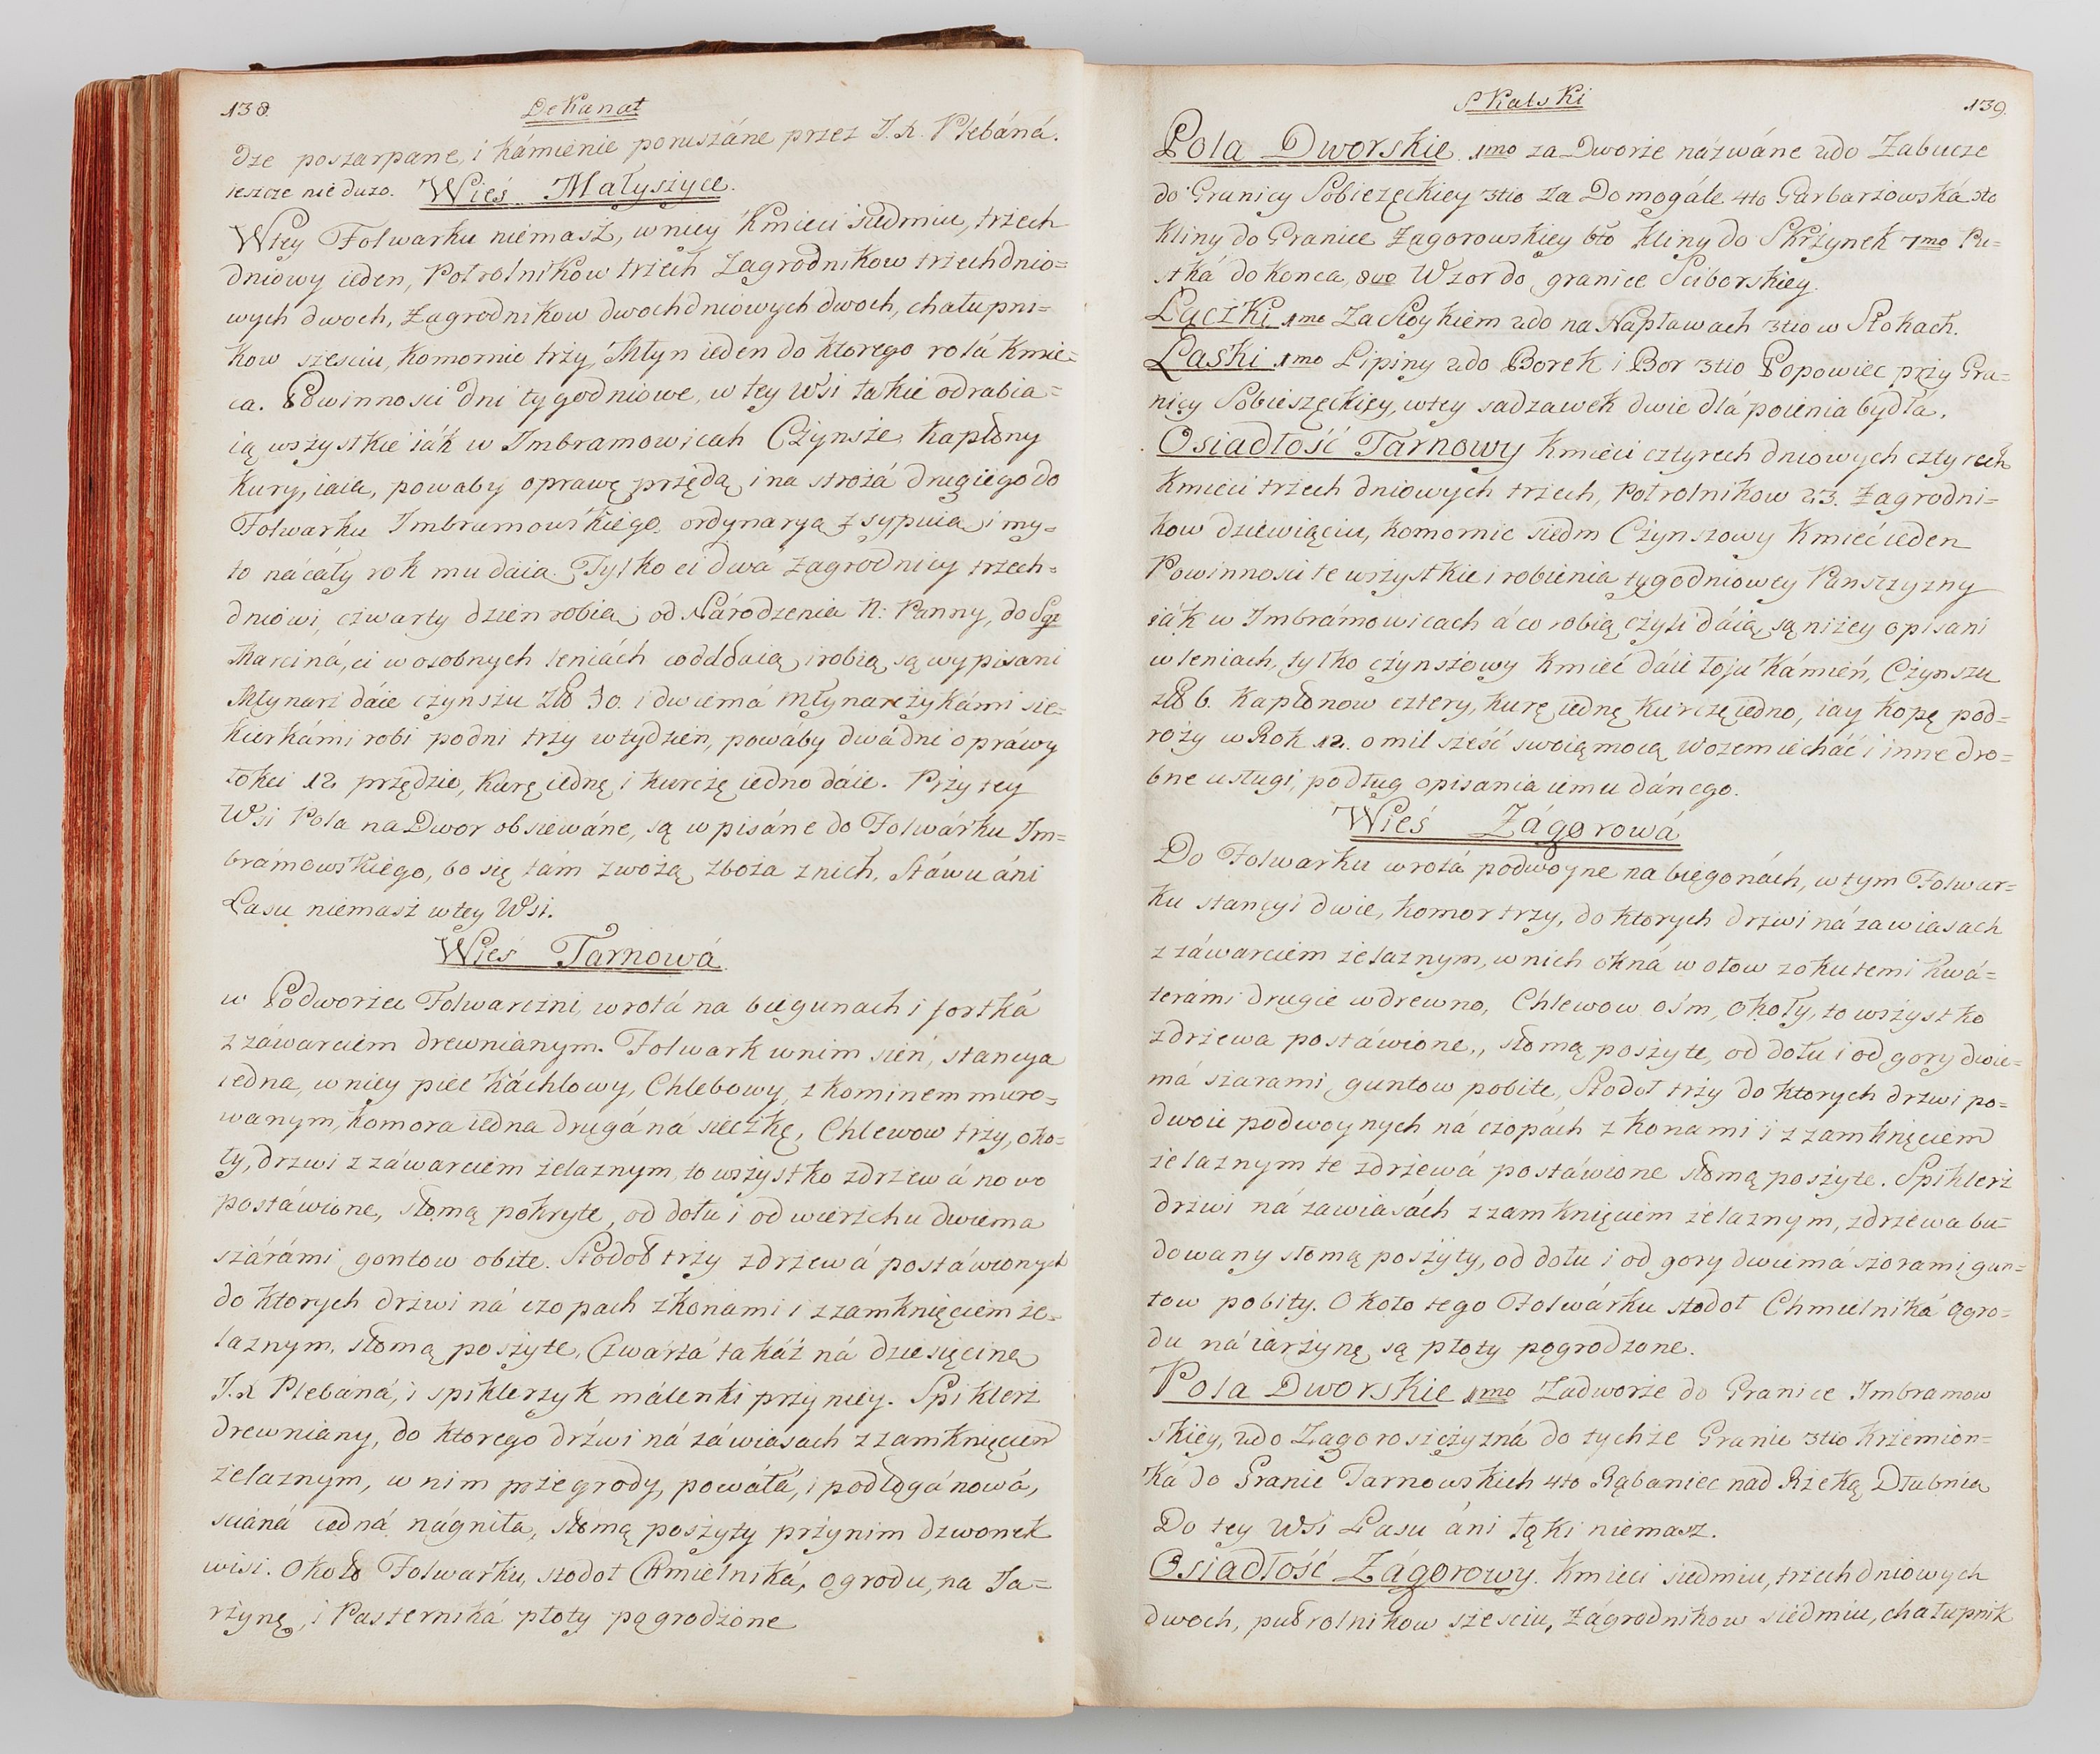 138.
Dekanat
dze poszarpane, i kámienie poruszáne przez J. X. Plebáná.
ieszcze nie duzo. Wieś Małyszyce.
W tey Folwarku niemasz, w niey Kmieci siedmiu, trzech
dniowy ieden, Połrolnikow trzech Zagrodnikow trzechdnio=
wych dwoch, Zagrodnikow dwochdniowych dwoch, chałupni=
kow szesciu, komornic trzy, Młyn ieden do ktorego rolá kmie=
ca. Powinnosci dni tygodniowe, w tey Wsi takie odrabia=
ią wszystkie iák w Imbramowicah Czynsze, kapłony
kury, iaia, powaby oprawę przędą i na strożá drugiego do
Folwarku Imbramowskiego, ordynaryą zsypuia i my=
to ná cáły rok mu daia. Tylko ci dwá Zagrodnicy trzech=
dniowi, czwarty dzien robią od Národzenia N: Panny, do Sgo
Marciná, ci w osobnych leniách co oddaią i robią są wypisani
Młynarz dáie czynszu Zło 30. i dwiemá Młynarzykámi sie=
kierkámi robi po dni trzy w tydzien, powaby dwá dni oprawy
łokci 12 przędzie, kurę iednę i kurczę iedno dáie. Przy tey
Wsi Pola na Dwor obsiewáne, są wpisáne do Folwárku Im=
brámowskiego, bo się tám zwożą zboża z nich. Stáwu áni
Lasu niemasz w tey Wsi.
Wieś Tarnowá
w Podworzu Folwarczni, wrotá na biegunach i fortká
z záwarciem drewnianym. Folwark w nim sień, stancya
iedna, w niey piec káchlowy, Chlebowy, z kominem muro=
wanym, komora iedna drugá ná sieczkę, Chlewow trzy, oko=
ły, drzwi z záwarciem żelaznym, to wszystko z drzewá nowo
postáwione, słomą pokryte, od dołu i od wierzchu dwiema
szárámi gontow obite. Stodoł trzy z drzewá postáwionych
do ktorych drzwi ná czopach z konami i z zamknięciem że=
laznym, słomą poszyte, Czwartá takáż ná dziesięcinę
J. X Plebáná, i spiklerzyk málenki przy niey. Spiklerz
drewniany, do ktorego drzwi ná záwiasach z zamknięciem
żelaznym, w nim przegrody, powáłá, i podłogá nowá,
scianá iedná nágniła, słomą poszyty przynim dzwonek
wisi. Około Folwarku, stodoł Chmielniká, ogrodu, na Ja=
rzynę, i Pasterniká płoty pogrodzone
Skalski
139.
Pola Dworskie 1mo za Dworze názwáne 2do Zabucze
do Granicy Sobiezęckiey 3tio Za Domogále 4to Garbarzowská 5to
kliny do Granice Zagorowskiey 6to kliny do Skrzynek 7mo Pu=
stká do konca, 8vo Wzor do granice Sciborskiey.
Łączki 1mo Za Stoykiem 2do na Napławach 3tio w Stokach.
Laski 1mo Lipiny 2do Borek i Bor 3tio Popowiec przy Gra=
nicy Sobieszęckiey, w tey sadzawek dwie dlá poienia bydlá.
Osiadłość Tarnowy Kmieci cztyrech dniowych cztyrech
Kmieci trzech dniowych trzech, Połrolnikow 23. Zagrodni=
kow dziewiąciu, komornic siedm Czynszowy Kmieć ieden
Powinnosci te wszystkie i robienia tygodniowey Panszczyzny
iák w Imbrámowicach á co robią czyli dáią, są niżey opisani
w leniach, tylko czynszowy kmieć dáie łoju kámień, Czynszu
zło 6. kapłonow cztery, kurę iednę kurczę iedno, iay kopę pod=
roży w Rok 12. o mil sześć swoią mocą wozem iecháć i inne dro=
bne usługi, podług opisania iemu dánego.
Wieś Zágorowá
Do Folwarku wrotá podwoyne na biegonách, w tym Folwar=
ku stancyi dwie, komor trzy, do ktorych drzwi ná zawiasach
z záwarciem żelaznym, w nich okná w ołow z okutemi kwá=
terámi drugie w drewno, Chlewow ośm, okoły, to wszystko
z drzewa postáwione, słomą poszyte, od dołu i od gory dwie=
má szarami guntow pobite, Stodoł trzy do ktorych drzwi po=
dwoie podwoynych ná czopách z konami i z zamknięciem
żelaznym te z drzewá postáwione słomą poszyte. Spiklerz
drzwi ná zawiasách z zamknięciem żelaznym, z drzewa bu=
dowany słomą poszyty, od dołu i od gory dwiemá szorami gun=
tow pobity. Około tego Folwárku stodoł Chmielniká ogro=
du ná iarzynę są płoty pogrodzone.
Pola Dworskie 1mo Zadworze do Granice Imbramow
skiey, 2do Zagorosiężyzná do tychże Granic 3tio Krzemion=
ká do Granic Tarnowskich 4to Rąbaniec nad Rzeką Dłubnią
Do tey Wsi Lasu áni łąki niemasz.
Osiadłość Zágorowy. Kmieci siedmiu, trzechdniowych
dwoch, pułrolnikow sześciu, Zágrodnikow siedmiu, chałupnik